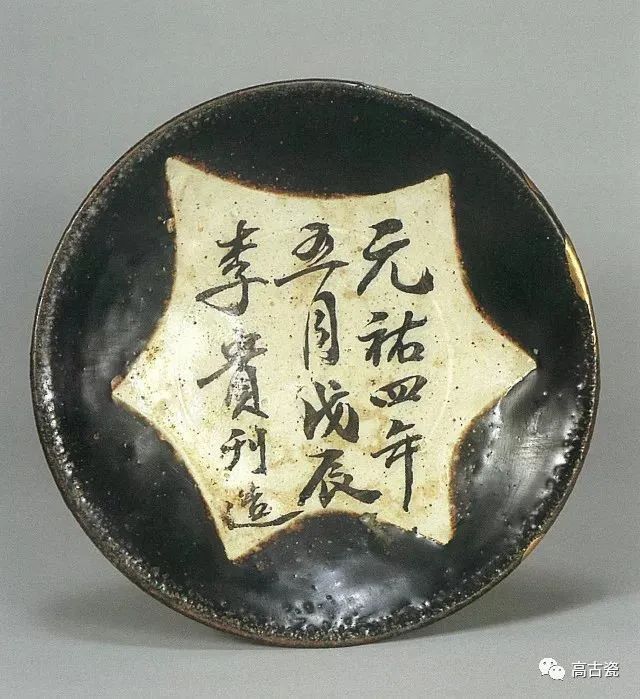 元祐四年
五月戊辰
李貴刊造
高古瓷